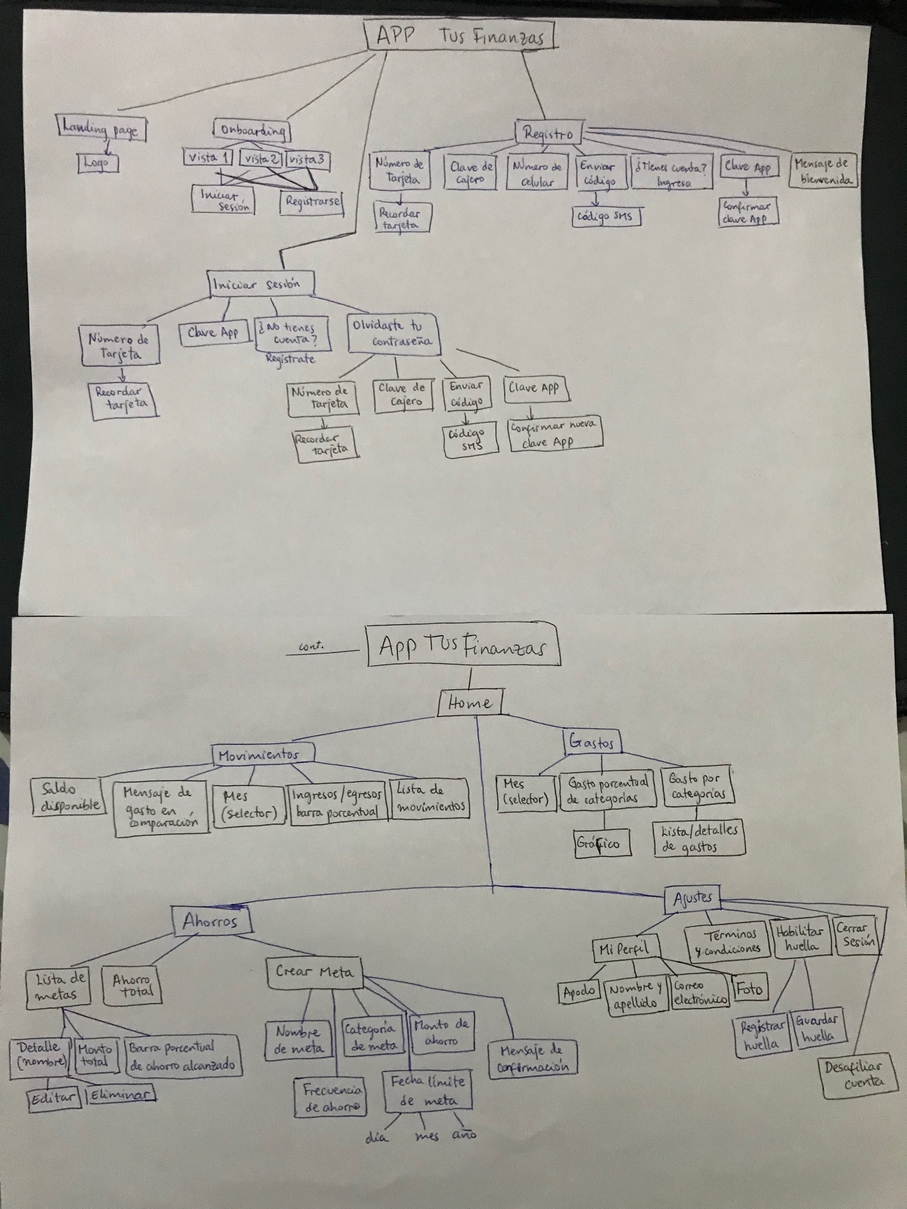 APP Tus Finanzas
Landing page
Logo
Onboarding
vista 1
vista 2
vista 3
Iniciar
sesión
Registrarse
Registro
Número de
Tarjeta
Recordar
tarjeta
Clave de
cajero
Número de
celular
Enviar
código
Código SMS
¿Tienes cuenta?
Ingresa
Clave App
Confirmar
clave App
Mensaje de
bienvenida
Iniciar sesión
Número de
Tarjeta
Recordar
tarjeta
Clave App
¿No tienes
cuenta?
Regístrate
Olvidaste tu
contraseña
Número de
tarjeta
Recordar
tarjeta
Clave de
cajero
Enviar
código
Código
SMS
Clave App
Confirmar nueva
clave App
cont.
App Tus Finanzas
Home
Movimientos
Saldo
disponible
Mensaje de
gasto en
comparación
Mes
(selector)
Ingresos/egresos
barra porcentual
Lista de
movimientos
Gastos
Mes
(selector)
Gasto porcentual
de categorías
Gráfico
Gasto por
categorías
Lista/detalles
de gastos
Ahorros
Lista de
metas
Detalle
(nombre)
Editar
Eliminar
Monto
total
Barra porcentual
de ahorro alcanzado
Ahorro
total
Crear Meta
Nombre
de meta
Frecuencia
de ahorro
Categoría
de meta
Fecha límite
de meta
día mes año
Monto de
ahorro
Mensaje de
confirmación
Ajustes
Mi Perfil
Apodo
Nombre y
apellido
Correo
electrónico
Foto
Términos
y condiciones
Habilitar
huella
Registrar
huella
Guardar
huella
Cerrar
Sesión
Desafiliar
cuenta